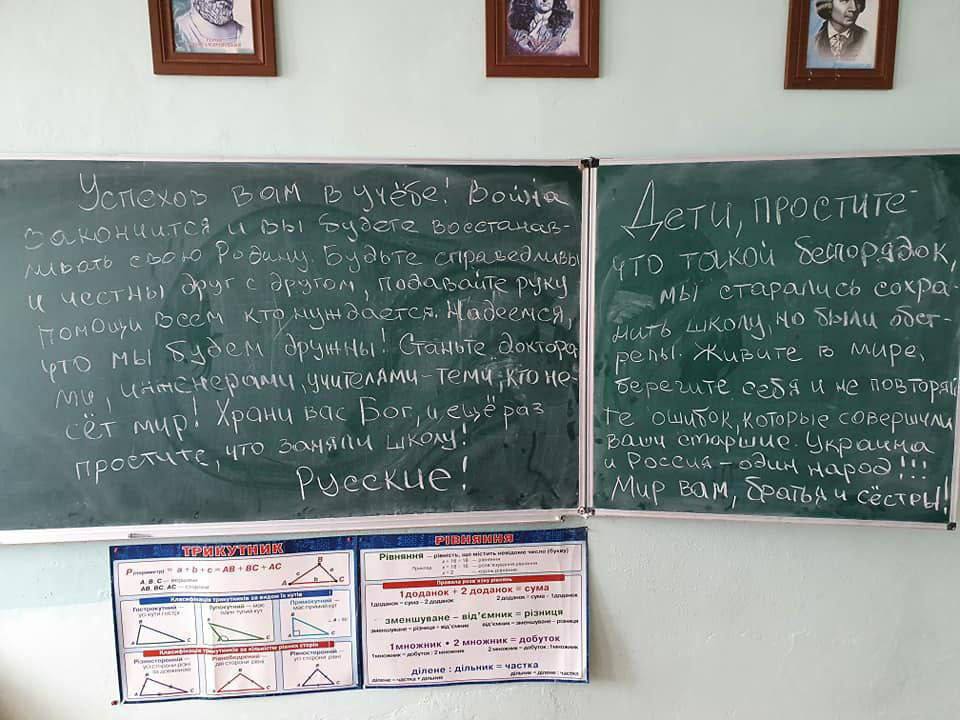 Успехов вам в учёбе! Война
закончится и вы будете восстанав-
ливать свою Родину. Будьте справедливы
и честны друг с другом, подавайте руку
помощи всем кто нуждается. Надеемся,
что мы будем дружны! Станьте доктора
ми, инженерами, учителями-теми, кто не-
сёт мир! Храни вас Бог, и ещё раз
простите, что заняли школу!
Русские!
Дети, простите
что такой беспорядок,
мы старались сохра-
нить школу, но были обст-
релы. Живите в мире,
берегите себя и не повторяй
те ошибок, которые совершили
ваши старшие. Украина
и Россия-один народ!!!
Мир вам, братья и сёстры!
ТРИКУТНИК
P(периметр) = a + b + c = AB + BC + AC
A, B, C — вершини
AB, BC, AC — сторони
B
a
c
A
b
C
Класифікація трикутників за видом їх кутів
Гострокутний —
усі кути гострі
Тупокутний — має
один тупий кут
Прямокутний —
має прямий кут
Класифікація трикутників за кількістю рівних сторін
Різносторонній —
усі сторони різні
за довжиною
Рівнобедрений —
дві сторони рівні
Рівносторонній —
усі сторони рівні
РІВНЯННЯ
Рівняння — рівність, що містить невідоме число (букву)
Правила розв'язку рівнянь
1доданок + 2 доданок = сума
1доданок = сума - 2 доданок
2 доданок = сума - 1доданок
зменшуване – від'ємник = різниця
зменшуване = різниця + від'ємник
від'ємник = зменшуване – різниця
1множник • 2 множник = добуток
1множник = добуток : 2 множник
2 множник = добуток : 1множник
ділене : дільник = частка
ділене = частка • дільник
дільник = ділене : частка